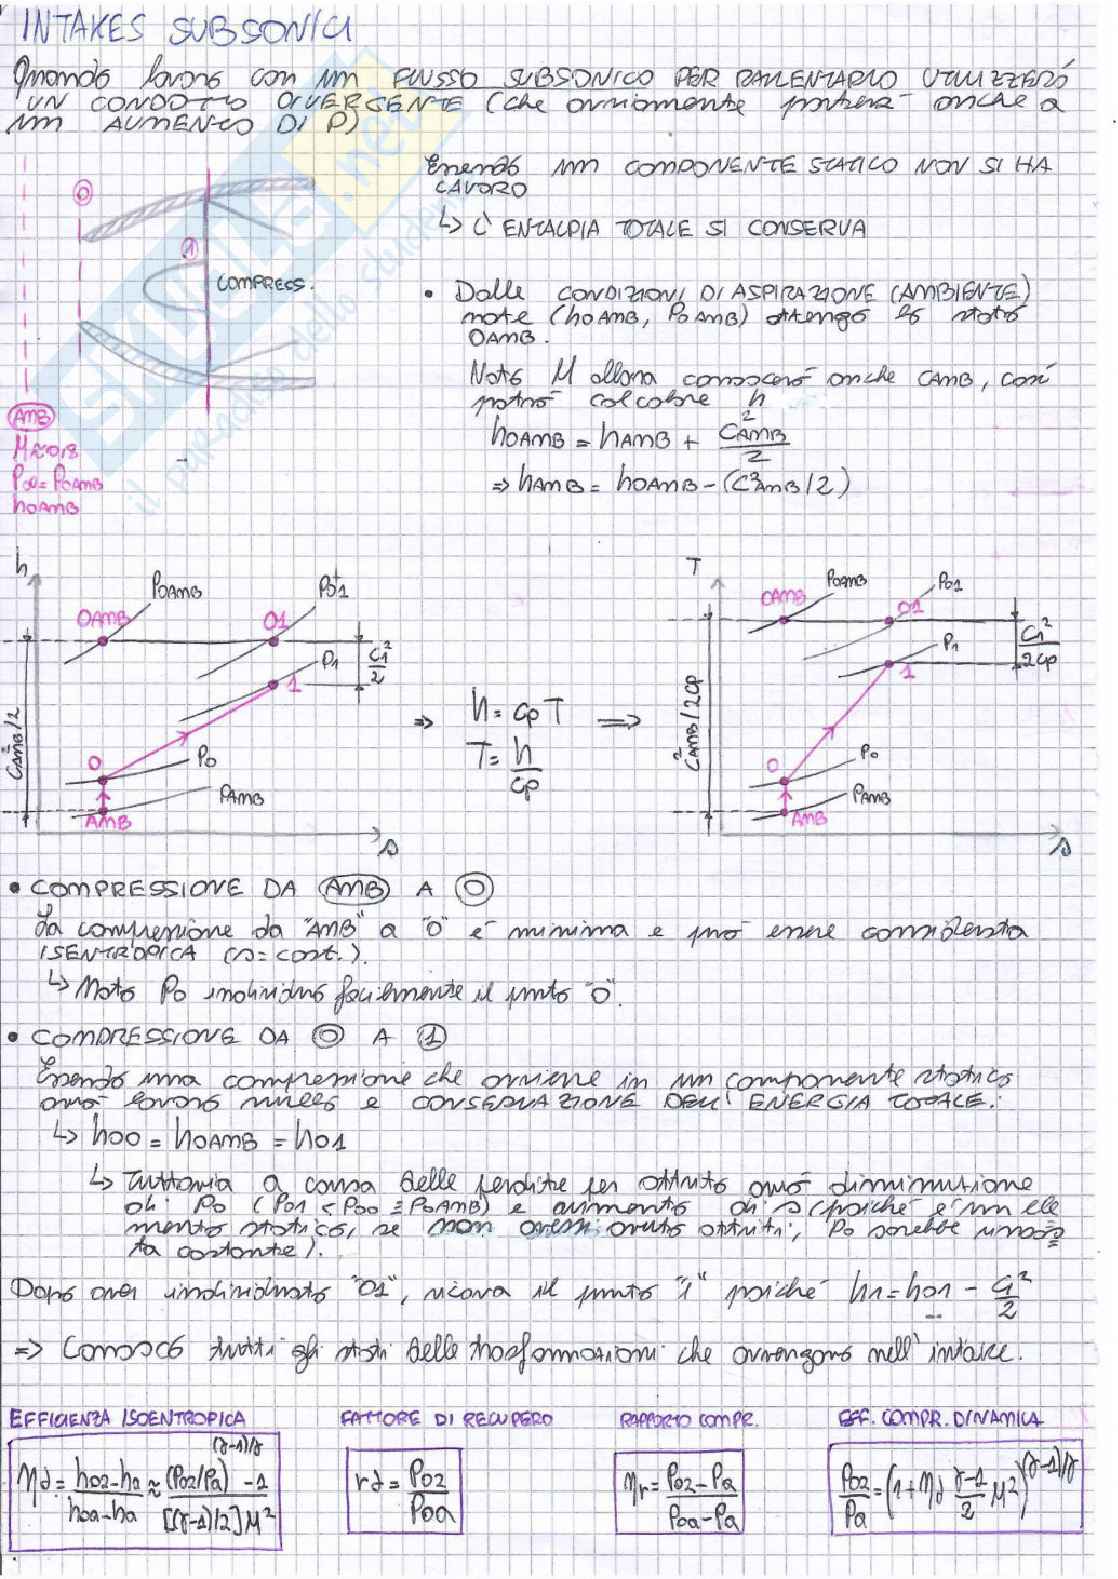 INTAKES SUBSONICI
Quando lavoro con un FLUSSO SUBSONICO PER RALLENTARLO UTILIZZERÒ
UN CONDOTTO DIVERGENTE (che ovviamente porterà anche a
un AUMENTO DI P)
Essendo un COMPONENTE STATICO NON SI HA
LAVORO
↳ L'ENTALPIA TOTALE SI CONSERVA
0
1
COMPRESS.
• Dalle CONDIZIONI DI ASPIRAZIONE (AMBIENTE)
note (h0AMB, P0AMB) ottengo lo stato
0AMB.
Noto M allora conoscerò anche CAMB, così
potrò calcolare h
h0AMB = hAMB + C²AMB/2
⇒ hAMB = h0AMB - (C²AMB/2)
AMB
M≈0,8
P00=P0AMB
h0AMB
SKUOLA.net
il paradiso dello studente
h
0AMB
P0AMB
P01
01
C1²/2
P1
1
C²AMB/2
0
P0
PAMB
AMB
s
⇒ h = cp T ⇒
T = h/cp
T
0AMB
P0AMB
P02
01
C1²/2cp
P1
1
C²AMB/2cp
0
P0
PAMB
AMB
s
• COMPRESSIONE DA AMB A 0
La compressione da "AMB" a "0" è minima e può essere considerata
ISENTROPICA (s=cost.).
↳ Noto P0 individuo facilmente il punto "0".
• COMPRESSIONE DA 0 A 1
Essendo una compressione che avviene in un componente statico
avrò lavoro nullo e CONSERVAZIONE DELL'ENERGIA TOTALE.:
↳ h00 = h0AMB = h01
↳ Tuttavia a causa delle perdite per attrito avrò diminuzione
di P0 (P01 < P00 ≡ P0AMB) e aumento di s (poiché è un ele
mento statico, se non avessi avuto attriti, P0 sarebbe rimas
ta costante).
Dopo aver individuato "01", ricavo il punto "1" poiché h1 = h01 - C1²/2
⇒ Conosco tutti gli stati delle trasformazioni che avvengono nell'intake.
EFFICIENZA ISOENTROPICA
ηd = (h02-ha)/(h0a-ha) ≈ ((P02/Pa)^((γ-1)/γ) -1)/([(γ-1)/2]M²)
FATTORE DI RECUPERO
rd = P02/P0a
RAPPORTO COMPR.
ηr = (P02-Pa)/(P0a-Pa)
EFF. COMPR. DINAMICA
P02/Pa = (1+ηd (γ-1)/2 M²)^((γ-1)/γ)